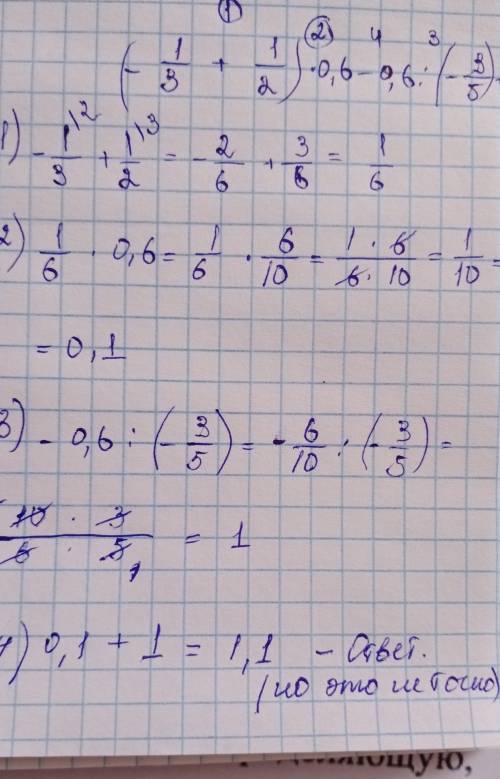 ① ② 4 3
(- 1/3 + 1/2) · 0,6 - 0,6 : (- 3/5)
1) - 1\2/3 + 1\3/2 = - 2/6 + 3/6 = 1/6
2) 1/6 · 0,6 = 1/6 · 6/10 = 1 · 6/6 · 10 = 1/10 =
= 0,1
3) - 0,6 : (- 3/5) = - 6/10 : (- 3/5) =
10 · 3/6 · 5 1 = 1
4) 0,1 + 1 = 1,1 - Ответ.
(но это не точно)
ющую,